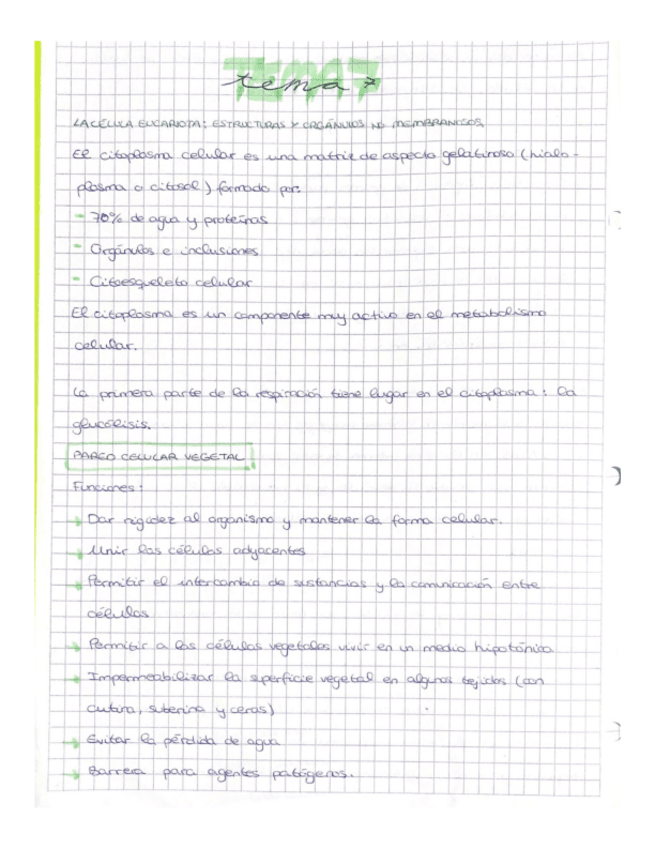 TEMA 7
tema 7
LA CÉLULA EUCARIOTA: ESTRUCTURAS Y ORGÁNULOS NO MEMBRANOSOS.
El citoplasma celular es una matriz de aspecto gelatinoso (hialo-
plasma o citosol) formado por:
- 70% de agua y proteínas
- Orgánulos e inclusiones
- Citoesqueleto celular
El citoplasma es un componente muy activo en el metabolismo
celular.
La primera parte de la respiración tiene lugar en el citoplasma: la
glucólisis.
PARED CELULAR VEGETAL
Funciones:
→ Dar rigidez al organismo y mantener la forma celular.
→ Unir las células adyacentes
→ Permitir el intercambio de sustancias y la comunicación entre
células
→ Permitir a las células vegetales vivir en un medio hipotónico
→ Impermeabilizar la superficie vegetal en algunos tejidos (con
cutina, suberina y ceras)
→ Evitar la pérdida de agua
→ Barrera para agentes patógenos.